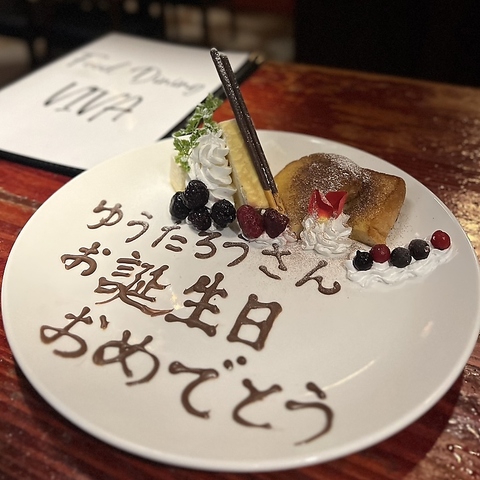 Food Dining
VIVA
ゆうたろうさん
お誕生日
おめでとう